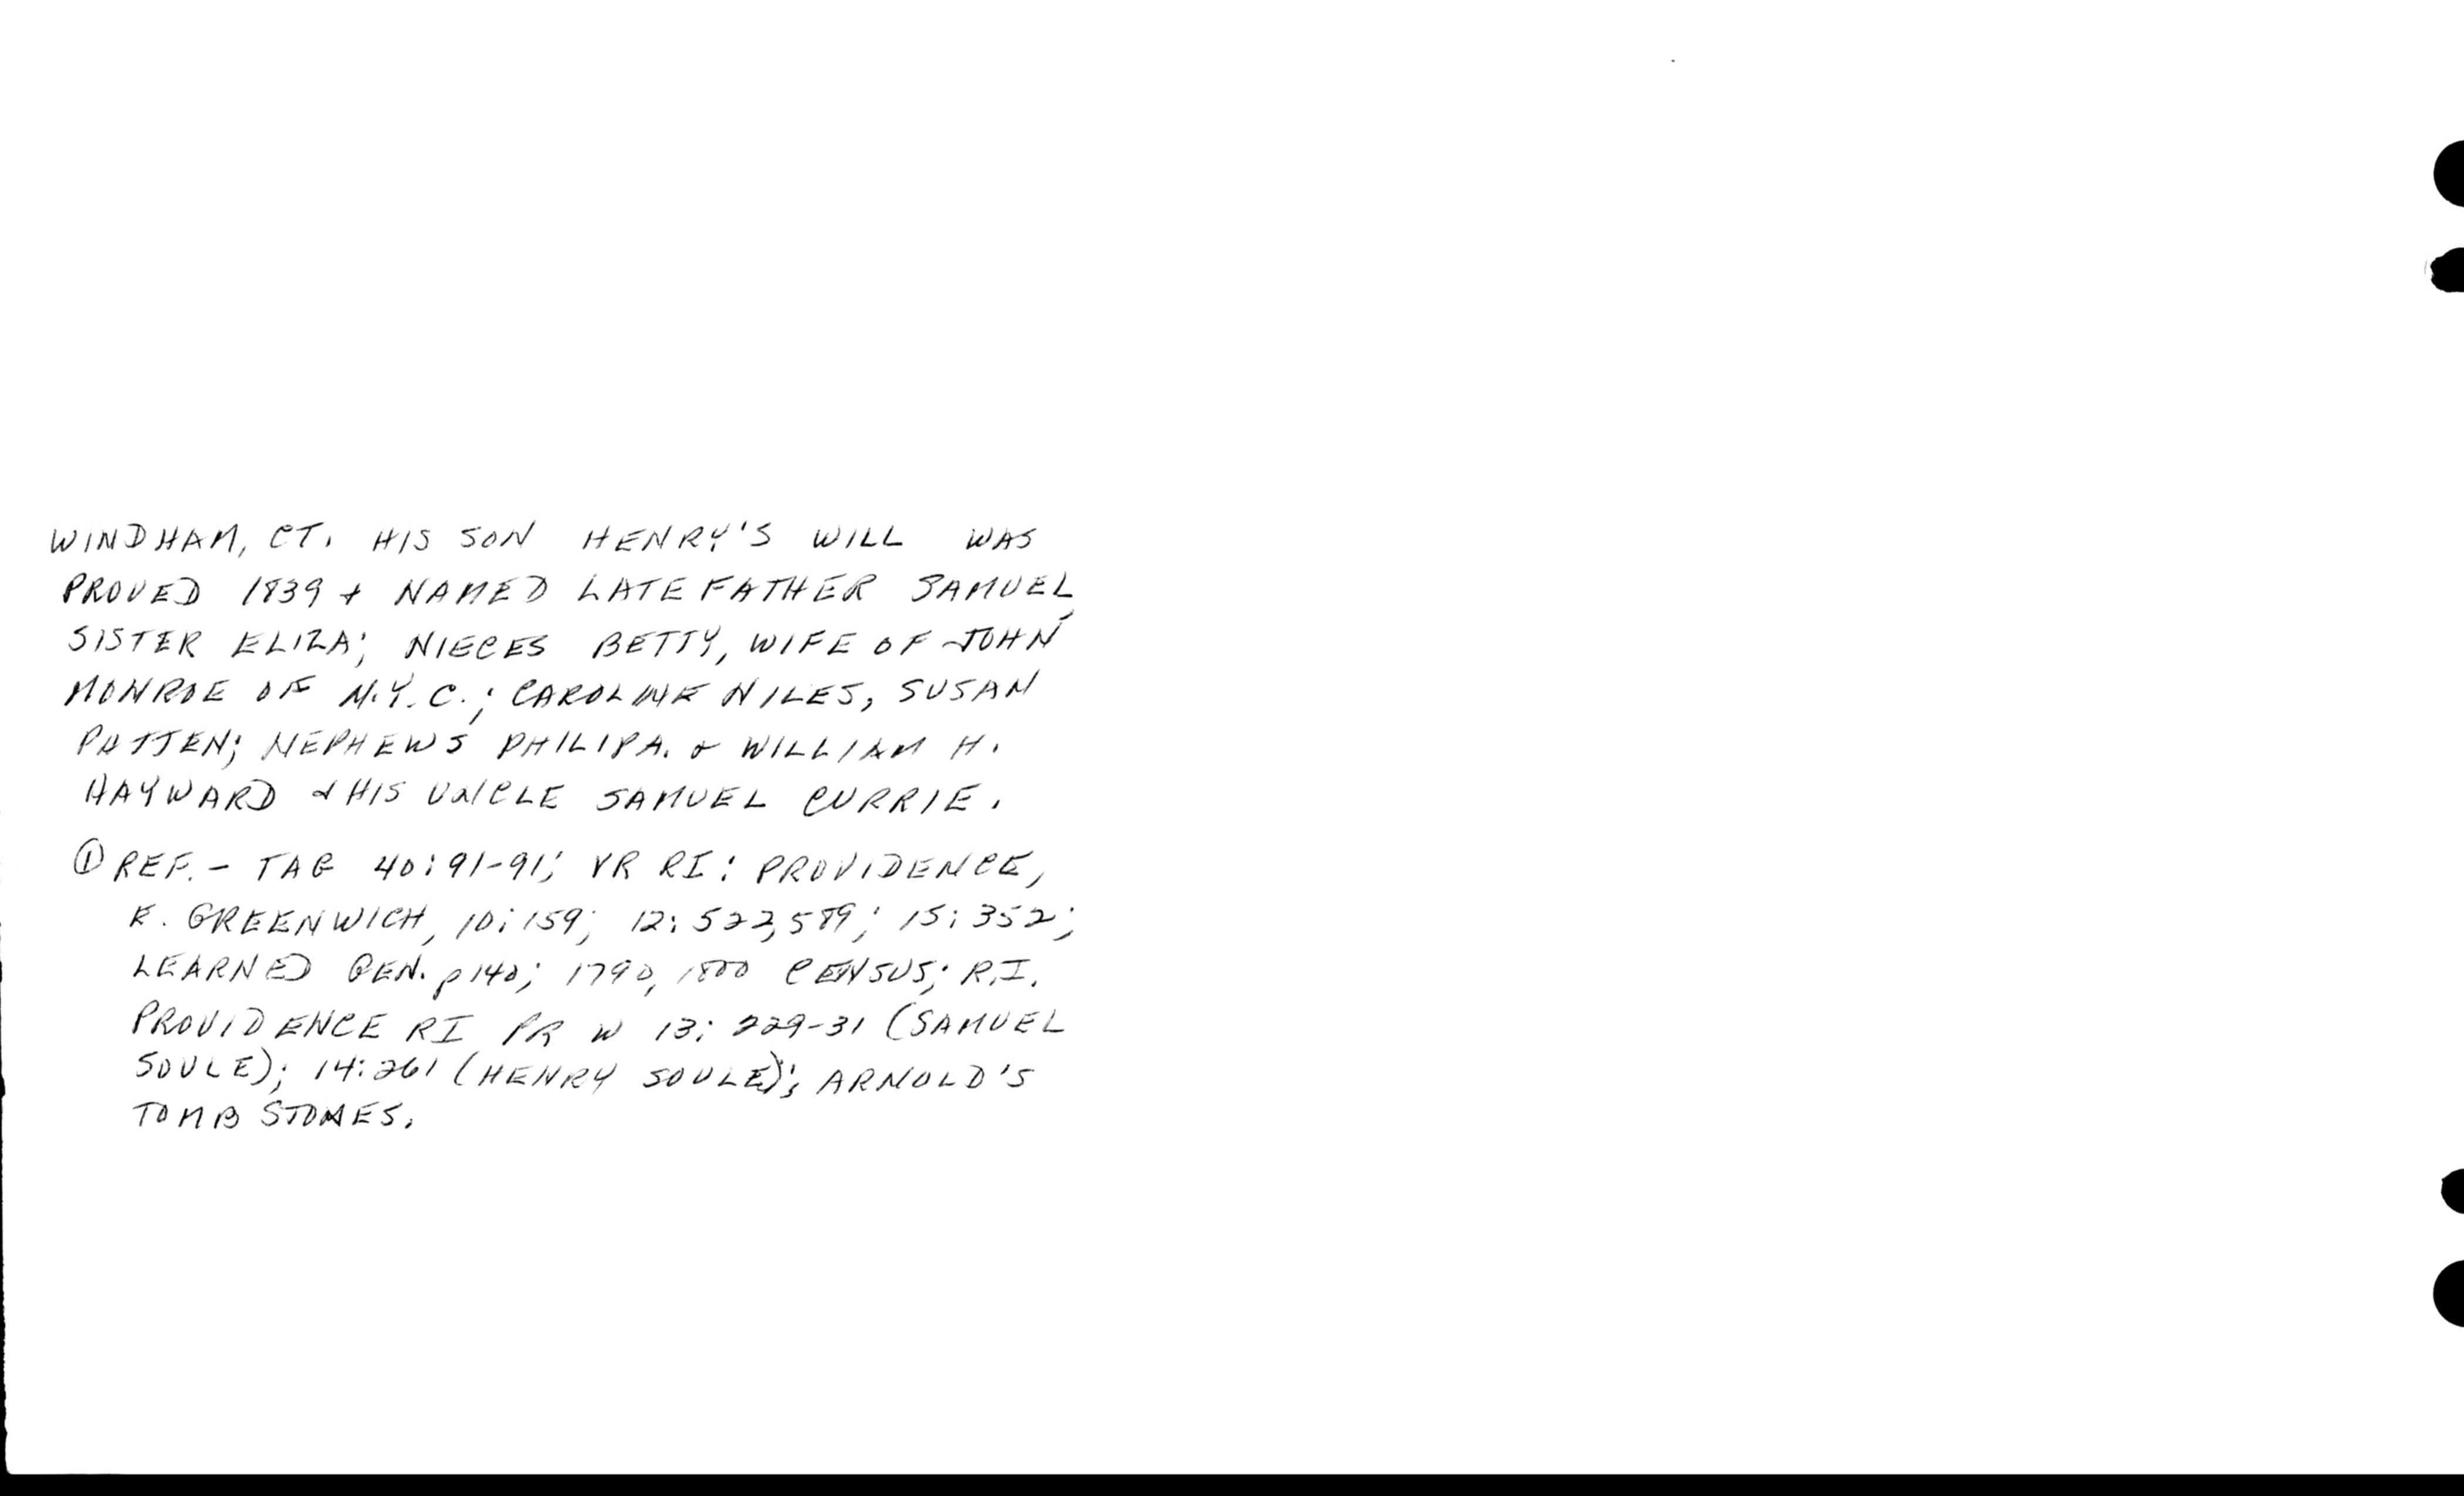 WINDHAM, CT. HIS SON HENRY'S WILL WAS
PROVED 1839 + NAMED LATE FATHER SAMUEL,
SISTER ELIZA; NIECES BETTY, WIFE OF JOHN
MONROE OF N.Y.C.; CAROLINE NILES, SUSAN
PATTEN; NEPHEWS PHILIP A. & WILLIAM H.
HAYWARD & HIS UNCLE SAMUEL CURRIE.
① REF. - TAG 40:91-91; VR RI: PROVIDENCE,
E. GREENWICH, 10:159; 12:522,589; 15:352;
LEARNED GEN. p140; 1790, 1800 CENSUS; R.I.
PROVIDENCE RI PR W 13: 229-31 (SAMUEL
SOULE); 14:261 (HENRY SOULE); ARNOLD'S
TOMB STONES.